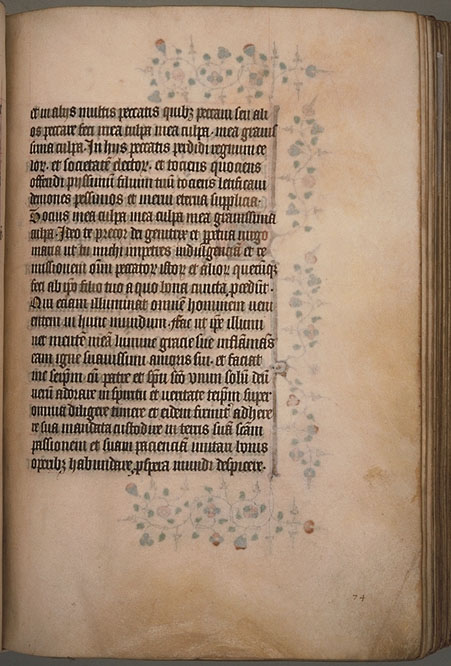 et in alijs multis peccatis quibz peccaui seu ali
os peccare feci mea culpa mea culpa mea grauis
sima culpa. In hijs peccatis perdidi regnum ce
lor. et societatem elector. et tociens quociens
offendi pijssimum filium tuum tociens letificaui
demones pessimos et merui eterna supplicia.
Socius mea culpa mea culpa mea grauissima
culpa. Ideo te precor dei genitrix et perpetua virgo
maria ut tu michi impetres indulgenciam et re
missionem omnium peccatorum istorum et aliorum quecumque
feci ab ipso filio tuo a quo bona cuncta procedunt.
Qui eciam illuminat omnem hominem veni
entem in hunc mundum. Fac ut ipse illumi
net mentem meam lumine gracie sue inflammans
eam igne suauissimi amoris sui. et faciat
me seipsum cum patre et spiritu sancto vnum solum deum
verum adorare in spiritu et veritate seipsum super
omnia diligere timere et eidem firmiter adhere
re sua mandata custodire in terris suam sanctam
passionem et suam pacienciam imitari bonis
operibz habundare, prospera mundi despicere.
74